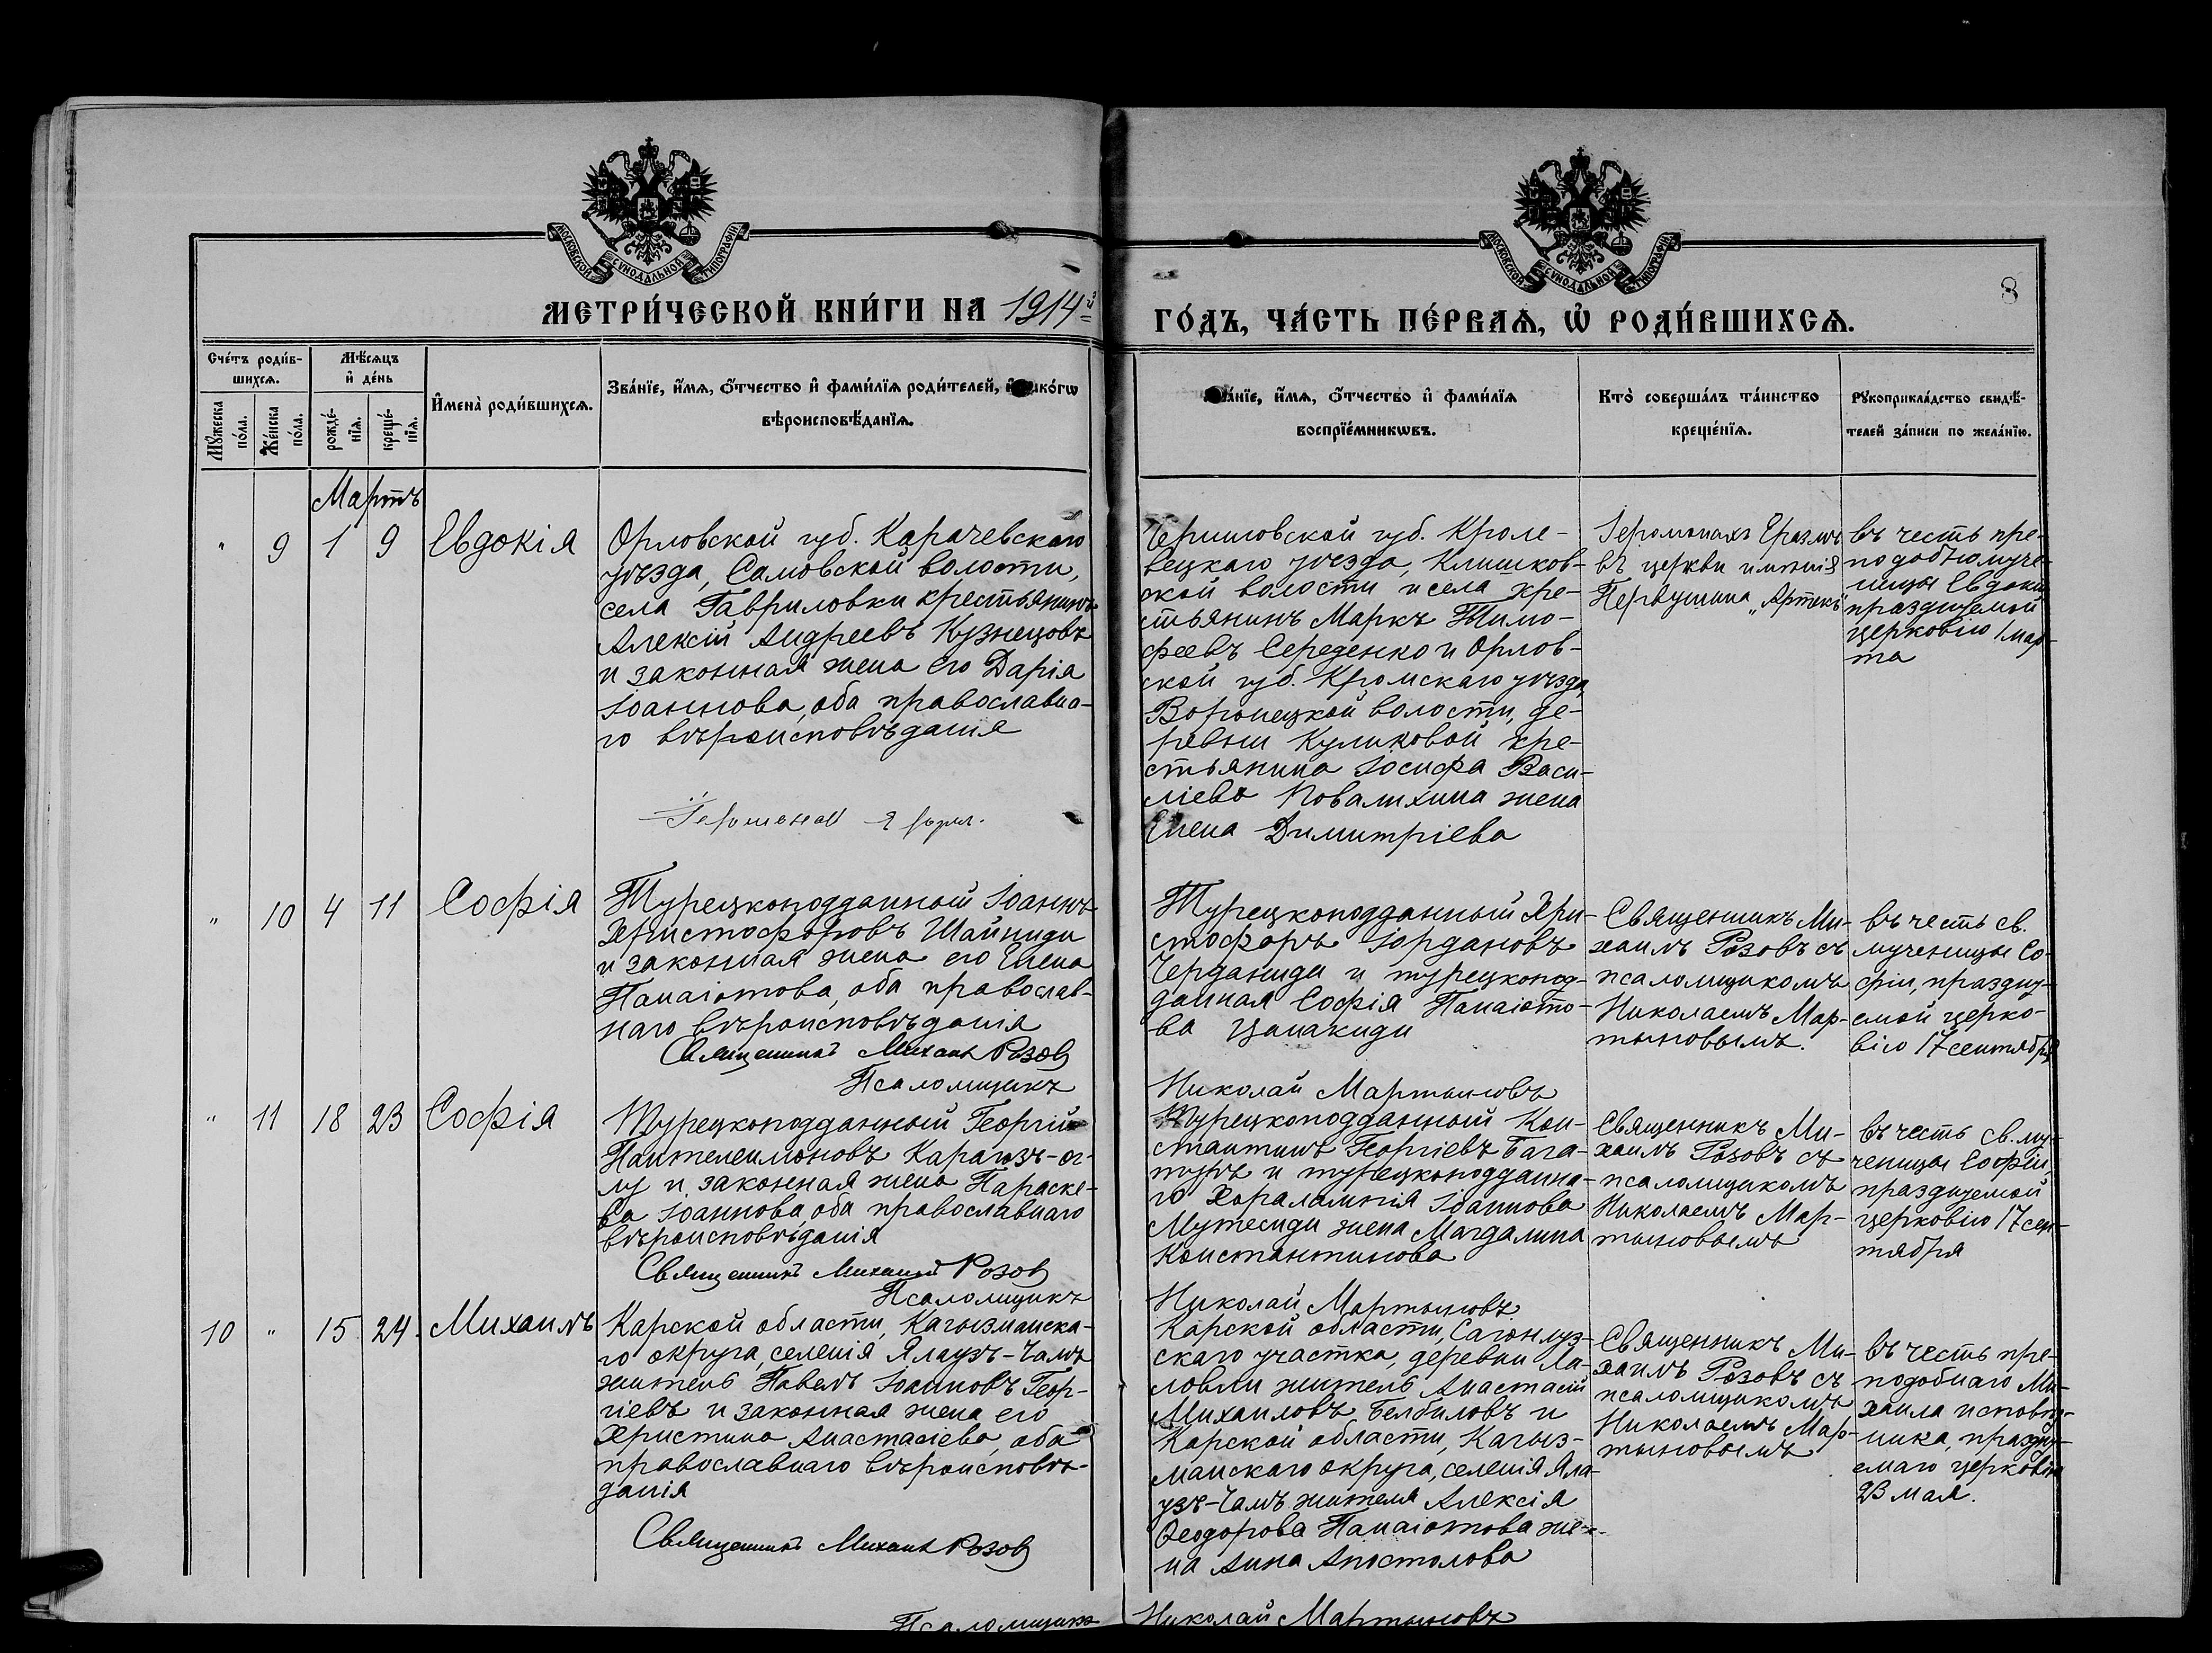 МОСКОВСКОЙ СѴНОДАЛЬНОЙ ТИПОГРАФІИ
МОСКОВСКОЙ СѴНОДАЛЬНОЙ ТИПОГРАФІИ
8
МЕТРИ́ЧЕСКОЙ КНИ́ГИ НА 1914й
ГО́ДЪ, ЧА́СТЬ ПЕ́РВАѦ, Ѡ҆ РОДИ́ВШИХСѦ.
Сче́тъ роди́в-
шихсѧ.
Мꙋ́жеска по́ла.
Же́нска по́ла.
Мѣ́сѧцъ
и҆ де́нь
рожде́-
нїѧ.
креще́-
нїѧ.
И҆мена̀ роди́вшихсѧ.
Зва́нїе, и҆́мѧ, о҆́тчество и҆ фами́лїѧ роди́телей, и҆ како́гѡ
вѣроисповѣ́данїѧ.
Зва́нїе, и҆́мѧ, о҆́тчество и҆ фами́лїѧ
воспрїе́мникѡвъ.
Кто̀ соверша́лъ та́инство
креще́нїѧ.
Рꙋкоприкла́дство свидѣ́-
телей за́писи по жела́нїю.
Мартъ
" 9 1 9 Евдокія
Орловской губ. Карачевскаго
уѣзда, Самовской волости,
села Гавриловки крестьянинъ
Алексій Андреевъ Кузнецовъ
и законная жена его Дарія
Іоаннова, оба православна-
го вѣроисповѣданія
Іеромонах
Черниговской губ. Кроле-
вецкаго уѣзда, Клишков-
ской волости и села кре-
стьянинъ Маркъ Тимо-
феевъ Середенко и Орлов-
ской губ. Кромскаго уѣзда,
Воронецкой волости, де-
ревни Куликовой кре-
стьянина Іосифа Васи-
ліева Ковалихина жена
Елена Димитріева
Іеромонахъ Еразмъ
въ церкви имѣнія
Первушина „Артекъ"
въ честь пре-
подобномуче-
ницы Евдокіи
празднуемой
церковію 1 мар-
та
" 10 4 11 Софія
Турецкоподданный Іоаннъ
Христофоровъ Шайниди
и законная жена его Елена
Панаіотова, оба православ-
наго вѣроисповѣданія
Священникъ Михаилъ Розовъ
Псаломщикъ
Турецкоподданный Хри-
стофоръ Іордановъ
Черданиди и турецкопод-
данная Софія Панаіото-
ва Цанакиди
Николай Мартыновъ
Священникъ Ми-
хаилъ Розовъ съ
псаломщикомъ
Николаемъ Мар-
тыновымъ.
въ честь св.
мученицы Со-
фіи, праздну-
емой церко-
вію 17 сентября
" 11 18 23 Софія
Турецкоподданный Георгій
Пантелеимоновъ Карагозъ-ог-
лу и законная жена Параске-
ва Іоаннова, оба православнаго
вѣроисповѣданія
Священникъ Михаилъ Розовъ
Псаломщикъ
Турецкоподданный Кон-
стантинъ Георгіевъ Бага-
туръ и турецкоподданна-
го Харалампія Іоаннова
Мутесиди жена Магдалина
Константинова
Николай Мартыновъ
Священникъ Ми-
хаилъ Розовъ съ
псаломщикомъ
Николаемъ Мар-
тыновымъ
въ честь св. му-
ченицы Софіи,
празднуемой
церковію 17 сен-
тября
10 " 15 24 Михаилъ
Карской области, Кагызманска-
го округа, селенія Ялаузъ-Чамъ
житель Павелъ Іоанновъ Геор-
гіевъ и законная жена его
Христина Анастасіева, оба
православнаго вѣроисповѣ-
данія
Священникъ Михаилъ Розовъ
Псаломщикъ
Карской области, Саганлуг-
скаго участка, деревни Ла-
ловли житель Анастасій
Михаиловъ Белбиловъ и
Карской области, Кагыз-
манскаго округа, селенія Яла-
узъ-Чамъ жителя Алексія
Ѳеодорова Панаіотова же-
на Анна Апостолова
Николай Мартыновъ
Священникъ Ми-
хаилъ Розовъ съ
псаломщикомъ
Николаемъ Мар-
тыновымъ
въ честь пре-
подобнаго Ми-
хаила исповѣд-
ника, праздну-
емаго церковію
23 мая.